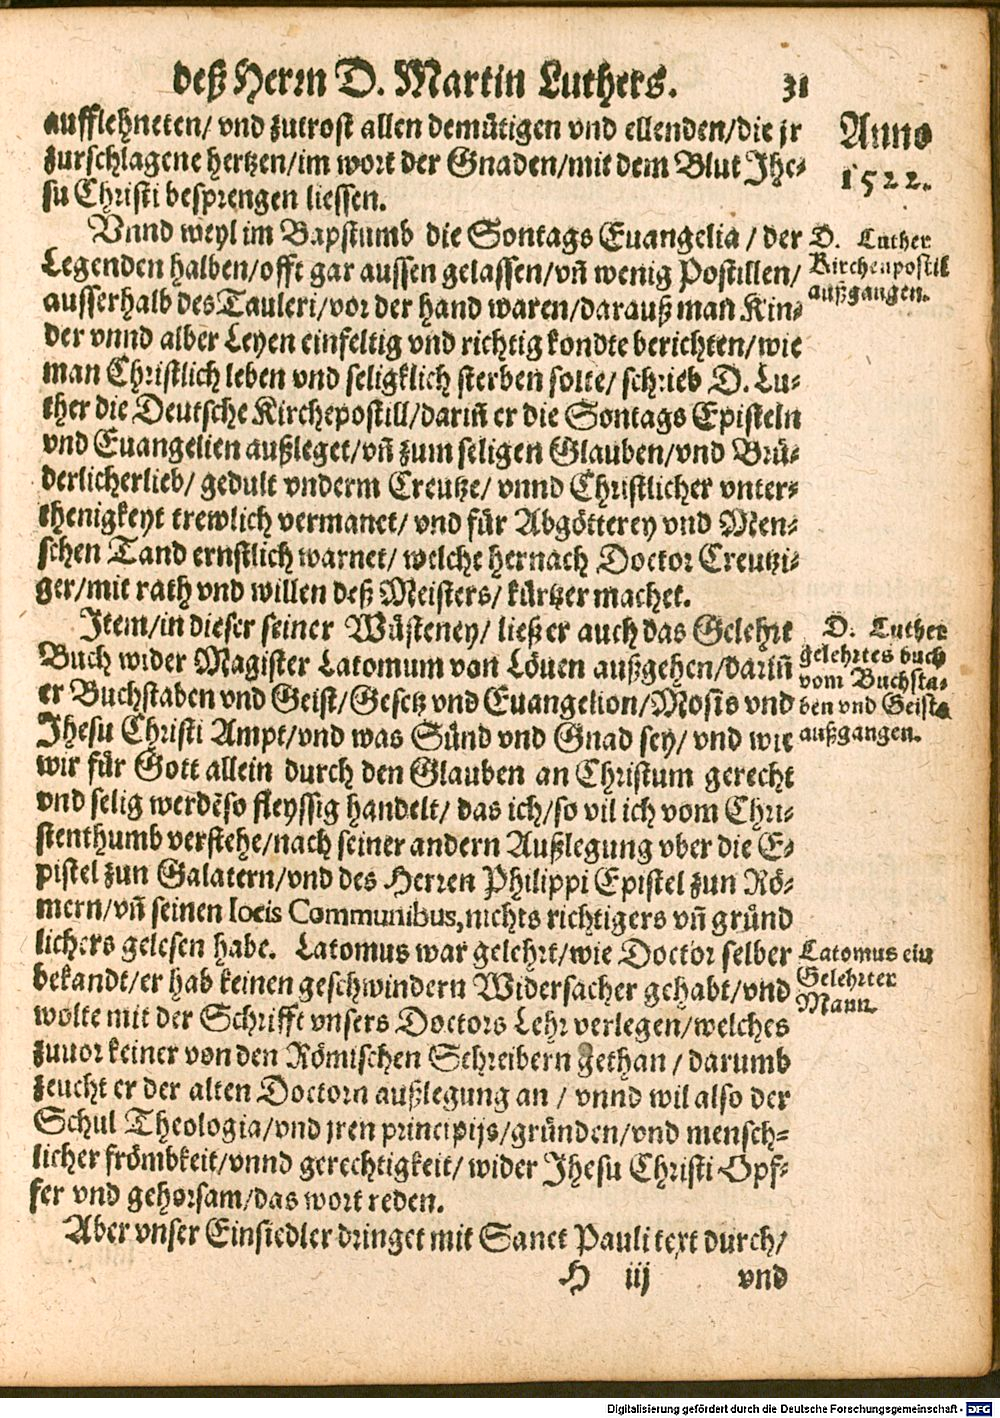 deß Herrn D. Martin Luthers. 31
aufflehneten/ vnd zutrost allen demütigen vnd ellenden/die jr
zurschlagene hertzen/im wort der Gnaden/mit dem Blut Jhe⸗
su Christi besprengen liessen.
Anno
1522.
Vnnd weyl im Bapstumb die Sontags Euangelia / der
Legenden halben/offt gar aussen gelassen/vñ wenig Postillen/
ausserhalb des Tauleri/vor der hand waren/darauß man Kin⸗
der vnnd alber Leyen einfeltig vnd richtig kondte berichten/wie
man Christlich leben vnd seligklich sterben solte/ schrieb D. Lu⸗
ther die Deutsche Kirchepostill/dariñ er die Sontags Episteln
vnd Euangelien außleget/vñ zum seligen Glauben/vnd Brü⸗
derlicherlieb/ gedult vnderm Creutze/ vnnd Christlicher vnter⸗
thenigkeyt trewlich vermanet/ vnd für Abgötterey vnd Men⸗
schen Tand ernstlich warnet/ welche hernach Doctor Creutzi⸗
ger/mit rath vnd willen deß Meisters/ kürtzer machet.
D. Luther
Kirchenpostil
außgangen.
Jtem/in dieser seiner Wüsteney/ ließ er auch das Gelehrt
Buch wider Magister Latomum von Löuen außgehen/dariñ
er Buchstaben vnd Geist/Gesetz vnd Euangelion/Mosis vnd
Jhesu Christi Ampt/vnd was Sünd vnd Gnad sey/ vnd wie
wir für Gott allein durch den Glauben an Christum gerecht
vnd selig werdẽ so fleyssig handelt/ das ich/so vil ich vom Chri⸗
stenthumb verstehe/nach seiner andern Außlegung vber die E⸗
pistel zun Galatern/vnd des Herren Philippi Epistel zun Rö⸗
mern/vñ seinen locis Communibus, nichts richtigers vñ gründ
lichers gelesen habe. Latomus war gelehrt/wie Doctor selber
bekandt/er hab keinen geschwindern Widersacher gehabt/vnd
wolte mit der Schrifft vnsers Doctors Lehr verlegen/welches
zuuor keiner von den Römischen Schreibern gethan / darumb
zeucht er der alten Doctorn außlegung an / vnnd wil also der
Schul Theologia/vnd jren principijs/gründen/vnd mensch⸗
licher frömbkeit/vnnd gerechtigkeit/ wider Jhesu Christi Opf⸗
fer vnd gehorsam/das wort reden.
D. Luther
gelehrtes buch
vom Buchsta⸗
ben vnd Geist
außgangen.
Latomus ein
Gelehrter
Mann.
Aber vnser Einsiedler dringet mit Sanct Pauli text durch/
H iij vnd
Digitalisierung gefördert durch die Deutsche Forschungsgemeinschaft - DFG